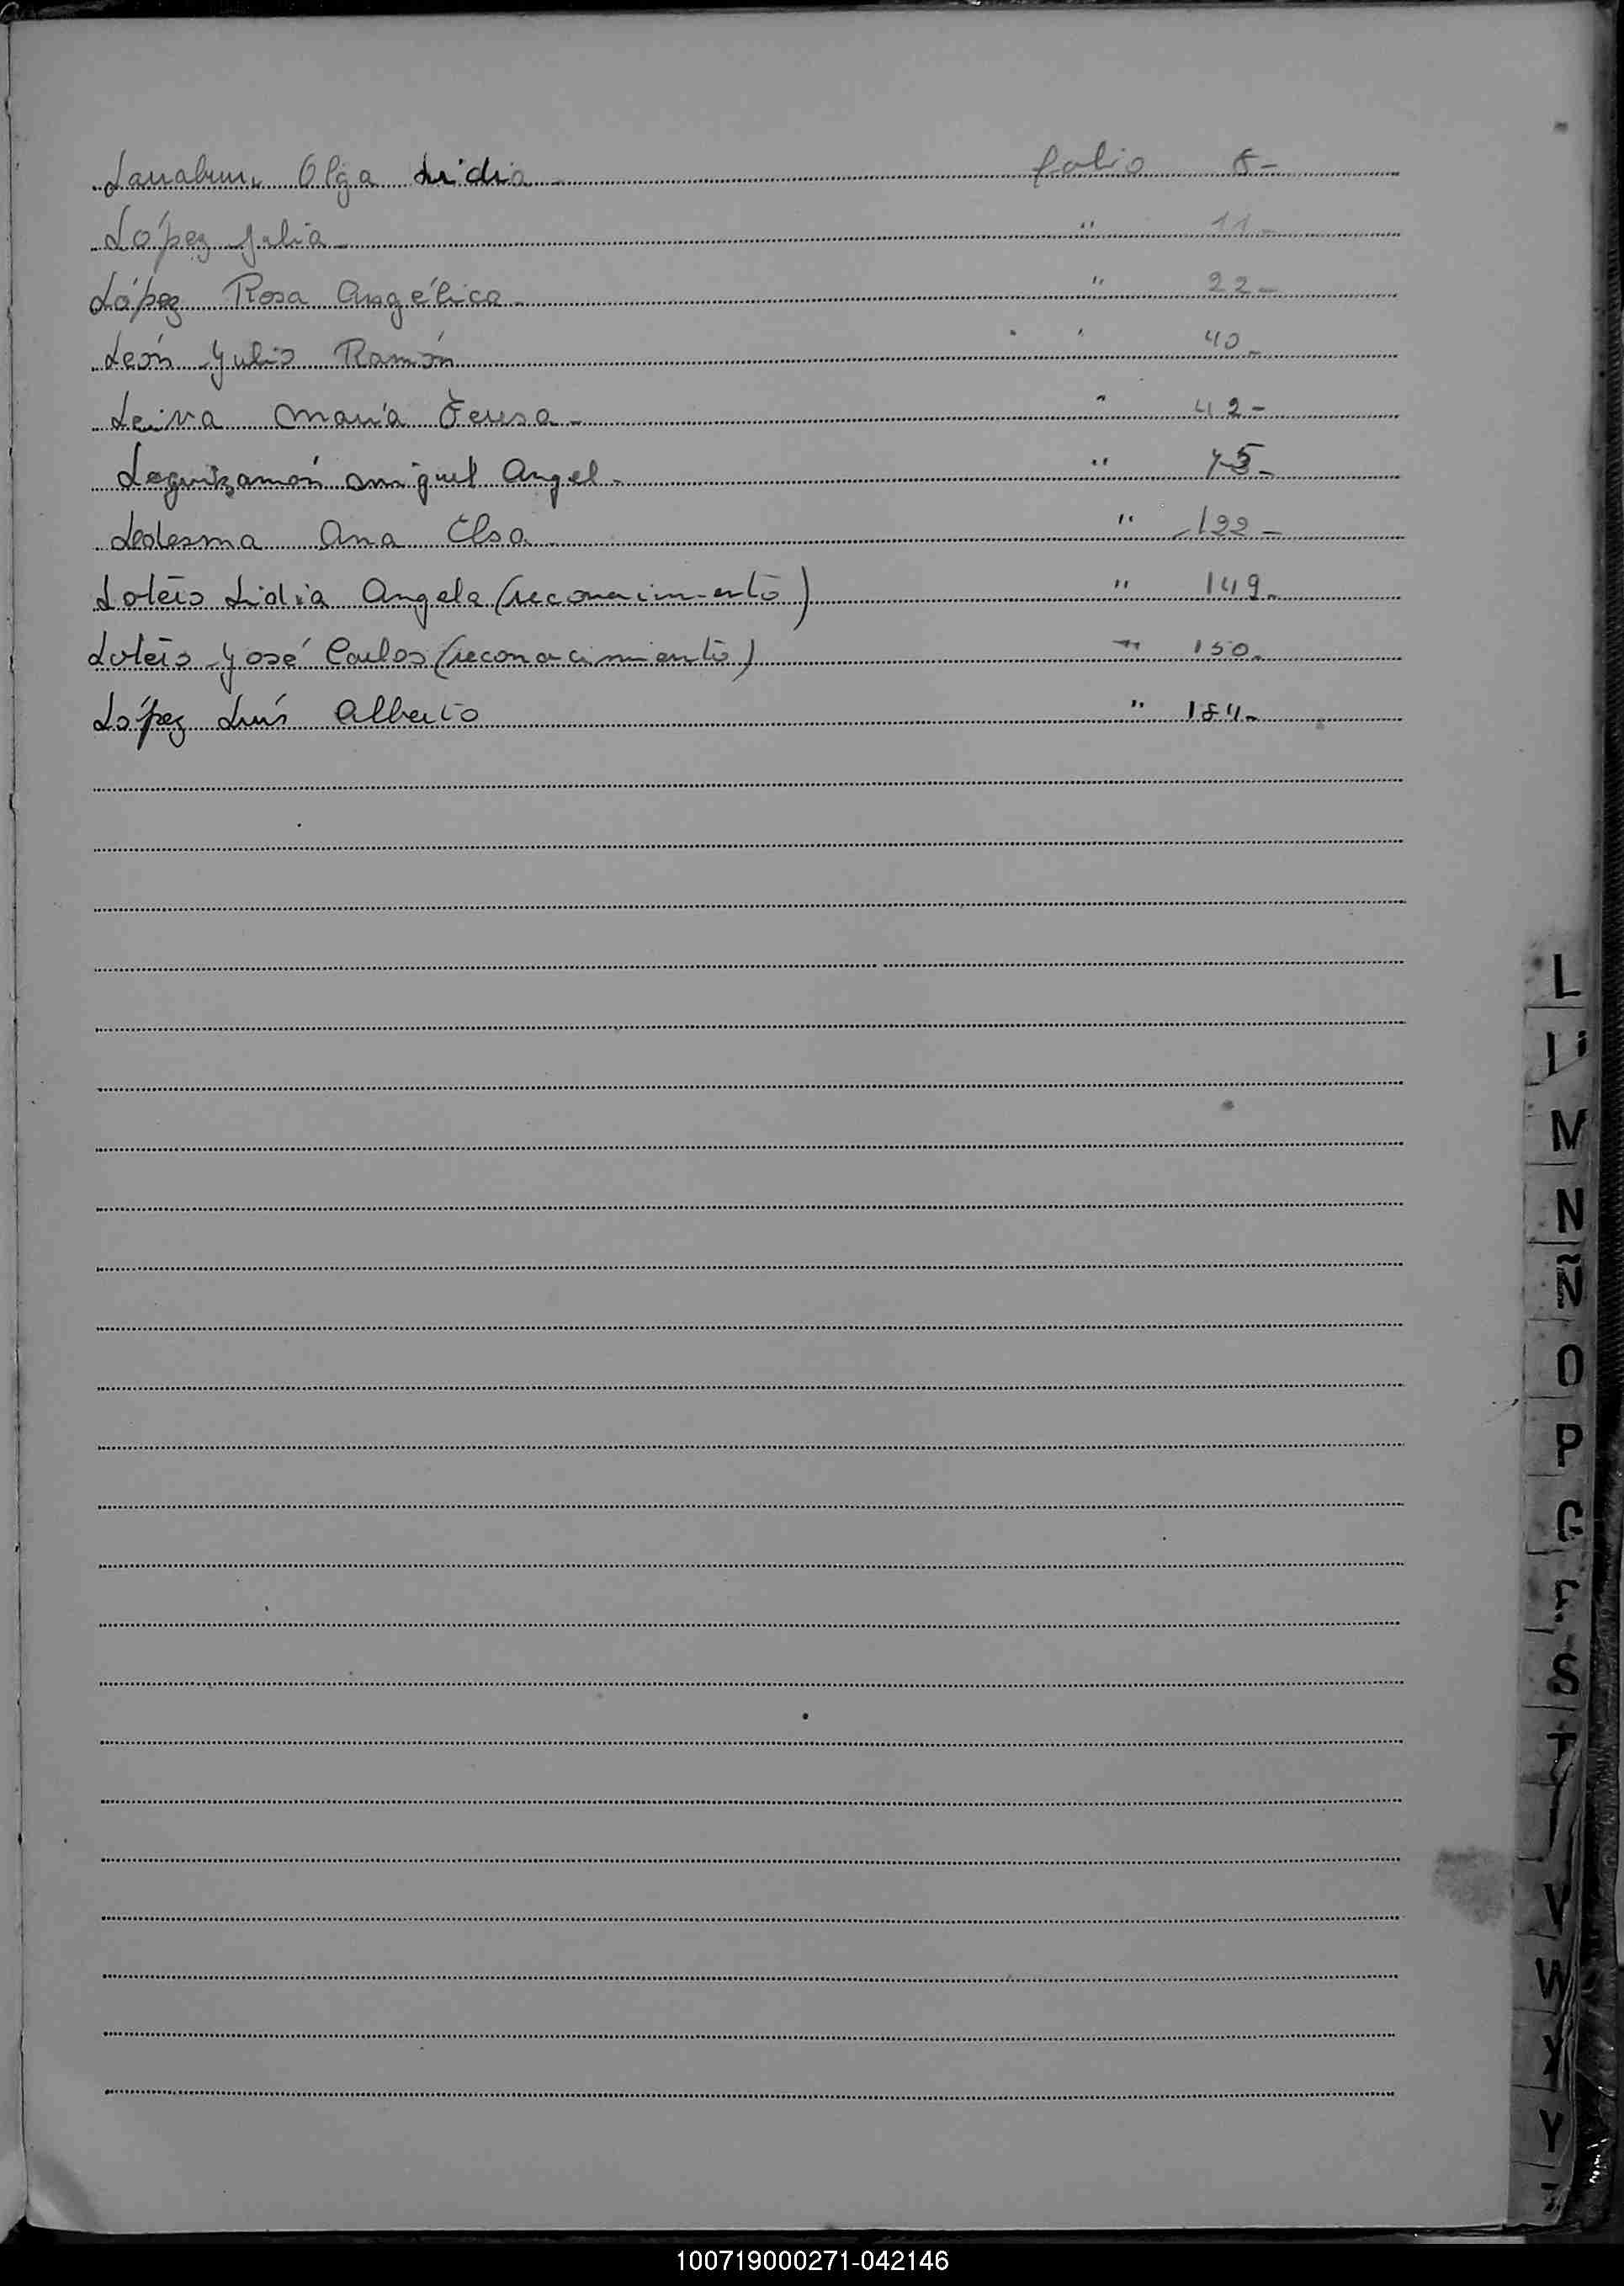 Olga Lidia - folio 8-
López Julia - " 11-
López Rosa Angélica - " 22-
León Julio Ramón " 40-
Leiva María Teresa - " 42-
Leguizamón Miguel Angel - " 75-
Ledesma Ana Elsa " 122-
Loteis Lidia Angela (reconocimiento) " 149-
Loteis José Carlos (reconocimiento) " 150-
López Luís Alberto " 184-
L
M
N
Ñ
O
P
S
T
V
W
X
Y
100719000271-042146